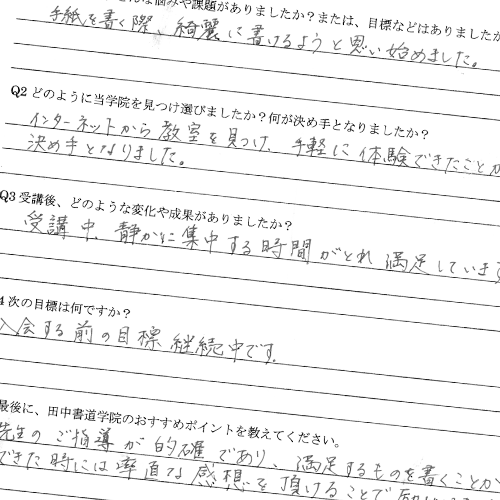 な悩みや課題がありましたか？または、目標などはありましたか
手紙を書く際、綺麗に書けるようと思い始めました。
Q2 どのように当学院を見つけ選びましたか？何が決め手となりましたか？
インターネットから教室を見つけ、手軽に体験できたことが
決め手となりました。
Q3 受講後、どのような変化や成果がありましたか？
受講中、静かに集中する時間がとれ満足しています
4 次の目標は何ですか？
入会する前の目標継続中です。
最後に、田中書道学院のおすすめポイントを教えてください。
先生のご指導が的確であり、満足するものを書くことが
できた時には率直な感想を頂けることで